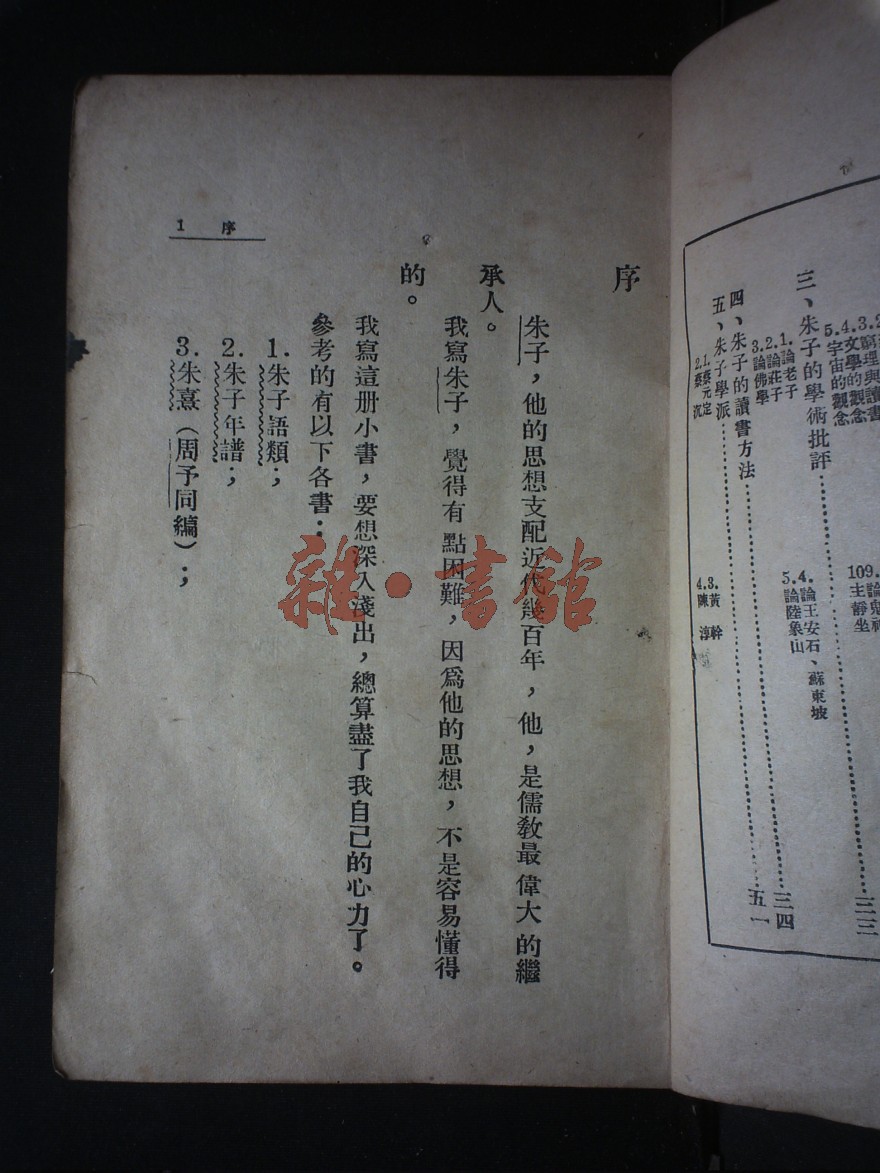 3.窮理與讀書
4.文學的觀念
5.宇宙的觀念
10.主靜坐
三、朱子的學術批評……………………
1.論老子
2.論莊子
3.論佛學
4.論王安石、蘇東坡
5.論陸象山
四、朱子的讀書方法……………………三四
五、朱子學派……………………五一
1.蔡元定
2.蔡　沉
3.黃　幹
4.陳　淳
序
朱子，他的思想支配近代幾百年，他，是儒敎最偉大的繼
承人。
我寫朱子，覺得有點困難，因爲他的思想，不是容易懂得
的。
我寫這册小書，要想深入淺出，總算盡了我自己的心力了。
參考的有以下各書：
1.朱子語類；
2.朱子年譜；
3.朱熹（周予同編）；
序　1
雜·書館